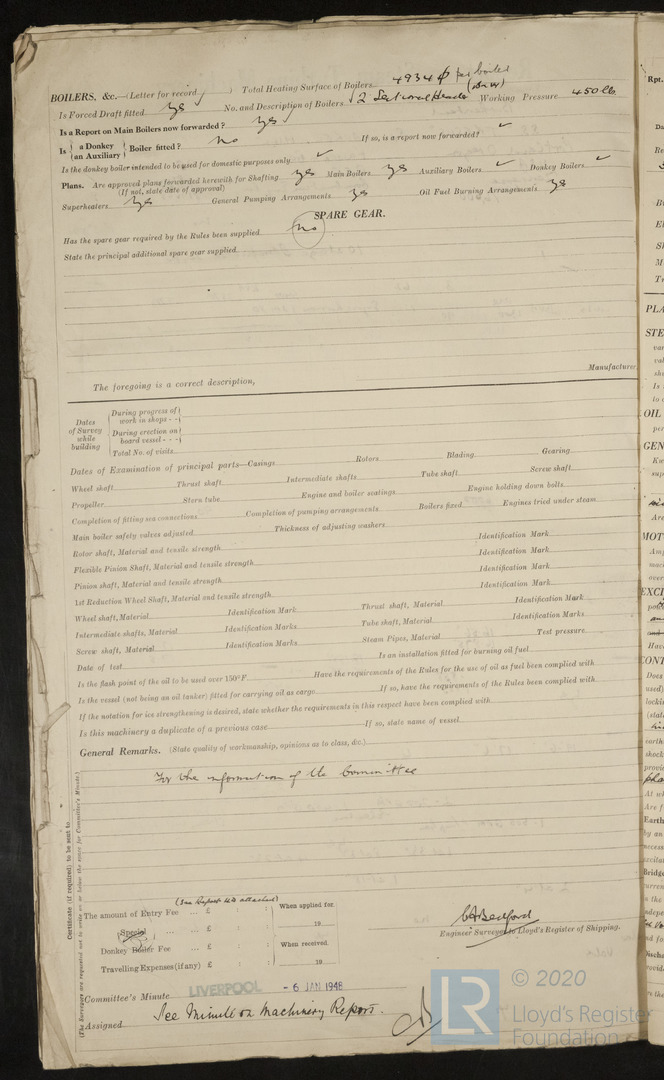 BOILERS, &c.—(Letter for record ✓ ) Total Heating Surface of Boilers 4934 ⌀ per boiler
Is Forced Draft fitted yes No. and Description of Boilers 2 Sectional Header (B&W) Working Pressure 450 lb
Is a Report on Main Boilers now forwarded? yes
Is { a Donkey / an Auxiliary } Boiler fitted? no If so, is a report now forwarded? ✓
Is the donkey boiler intended to be used for domestic purposes only ✓
Plans. Are approved plans forwarded herewith for Shafting yes Main Boilers yes Auxiliary Boilers ✓ Donkey Boilers ✓
(If not, state date of approval)
Superheaters yes General Pumping Arrangements yes Oil Fuel Burning Arrangements yes
SPARE GEAR.
Has the spare gear required by the Rules been supplied no
State the principal additional spare gear supplied
Manufacturer.
The foregoing is a correct description,
Dates of Survey while building
During progress of work in shops - -
During erection on board vessel - - -
Total No. of visits
Dates of Examination of principal parts—Casings Rotors Blading Gearing
Wheel shaft Thrust shaft Intermediate shafts Tube shaft Screw shaft
Propeller Stern tube Engine and boiler seatings Engine holding down bolts
Completion of fitting sea connections Completion of pumping arrangements Boilers fixed Engines tried under steam
Main boiler safety valves adjusted Thickness of adjusting washers
Rotor shaft, Material and tensile strength Identification Mark
Flexible Pinion Shaft, Material and tensile strength Identification Mark
Pinion shaft, Material and tensile strength Identification Mark
1st Reduction Wheel Shaft, Material and tensile strength Identification Mark
Wheel shaft, Material Identification Mark Thrust shaft, Material Identification Mark
Intermediate shafts, Material Identification Marks Tube shaft, Material Identification Marks
Screw shaft, Material Identification Marks Steam Pipes, Material Test pressure
Date of test Is an installation fitted for burning oil fuel
Is the flash point of the oil to be used over 150°F. Have the requirements of the Rules for the use of oil as fuel been complied with
Is the vessel (not being an oil tanker) fitted for carrying oil as cargo If so, have the requirements of the Rules been complied with
If the notation for ice strengthening is desired, state whether the requirements in this respect have been complied with
Is this machinery a duplicate of a previous case If so, state name of vessel
General Remarks. (State quality of workmanship, opinions as to class, &c.)
For the information of the Committee
Certificate (if required) to be sent to
(The Surveyors are requested not to write on or below the space for Committee's Minute.)
(See Report 4b attached)
The amount of Entry Fee ... £ : : When applied for
Special ... ... £ : : 19
Donkey Boiler Fee ... £ : : When received.
Travelling Expenses (if any) £ : : 19
CABedford
Engineer Surveyor to Lloyd's Register of Shipping.
Committee's Minute LIVERPOOL - 6 JAN 1948
Assigned See Minute on Machinery Report.
LR
© 2020
Lloyd's Register
Foundation